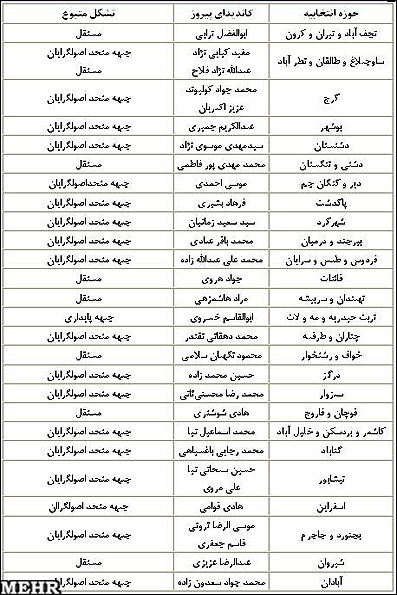 حوزه انتخابیه کاندیدای پیروز تشکل متبوع
نجف آباد و تیران و کرون ابوالفضل ترابی مستقل
ساوجبلاغ و طالقان و نظر آباد مفید کیایی نژاد جبهه متحد اصولگرایان
عبدالله نژاد فلاح مستقل
کرج محمد جواد کولیوند جبهه متحد اصولگرایان
عزیز اکبریان
بوشهر عبدالکریم جمیری جبهه متحد اصولگرایان
دشتستان سیدمهدی موسوی نژاد جبهه متحد اصولگرایان
دشتی و تنگستان محمد مهدی پور فاطمی مستقل
دیر و کنگان جم موسی احمدی جبهه متحداصولگرایان
پاکدشت فرهاد بشیری جبهه متحد اصولگرایان
شهرکرد سید سعید زمانیان جبهه متحد اصولگرایان
بیرجند و درمیان محمد باقر عبادی جبهه متحد اصولگرایان
فردوس و طبس و سرایان محمد علی عبدالله زاده جبهه متحد اصولگرایان
قائنات جواد هروی مستقل
نهبندان و سربیشه مراد هاشمزهی مستقل
تربت حیدریه و مه و لات ابوالقاسم خسروی جبهه پایداری
چناران و طرقبه محمد دهقانی نقندر جبهه متحد اصولگرایان
خواف و رشتخوار محمود نگهبان سلامی مستقل
درگز حسین محمد زاده جبهه متحد اصولگرایان
سبزوار محمد رضا محسنی‌ثانی جبهه متحد اصولگرایان
قوچان و فاروج هادی شوشتری مستقل
کاشمر و بردسکن و خلیل آباد محمد اسماعیل نیا جبهه متحد اصولگرایان
گناباد محمد رجایی باغسیاهی جبهه متحد اصولگرایان
نیشابور حسین سبحانی نیا جبهه متحد اصولگرایان
علی مروی
اسفراین هادی قوامی جبهه متحد اصولگران
بجنورد و جاجرم موسی الرضا ثروتی جبهه متحد اصولگرایان
قاسم جعفری
شیروان عبدالرضا عزیزی مستقل
آبادان محمد جواد سعدون زاده جبهه متحد اصولگرایان
MEHR